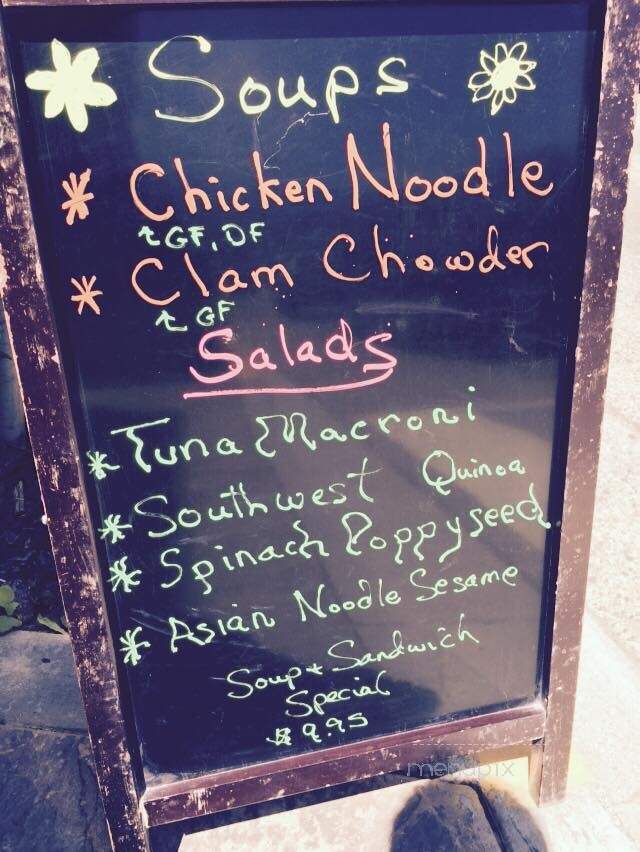 Soups
* Chicken Noodle
↑ GF, DF
* Clam Chowder
↑ GF
Salads
* Tuna Macroni
* Southwest Quinoa
* Spinach Poppyseed
* Asian Noodle Sesame
Soup + Sandwich
Special
$9.95
menupix